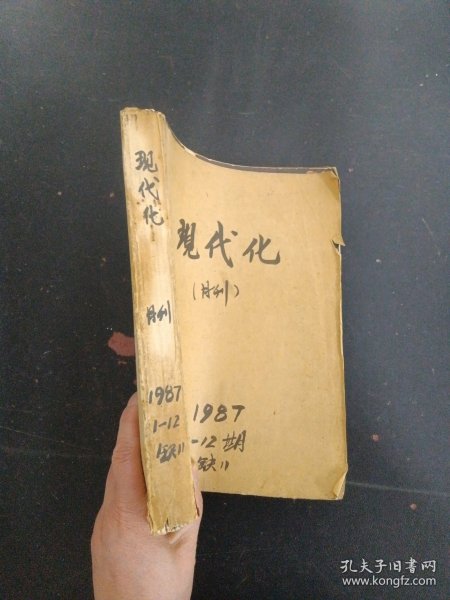 现代化
月刊
1987
1-12
缺11
現代化
（月刊）
1987
-12期
缺11
孔夫子旧书网
www.kongfz.com